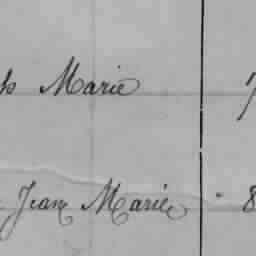 Marie 7
Jean Marie " 8